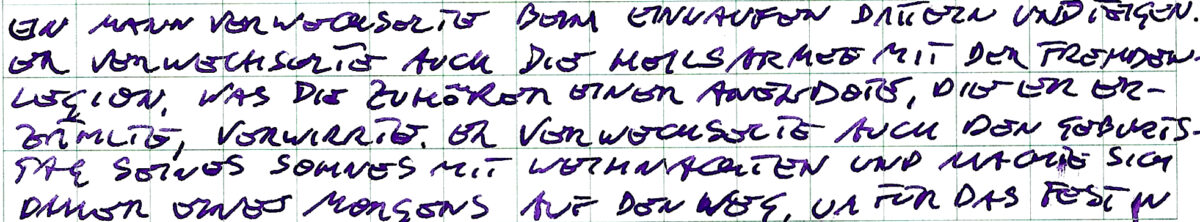 EIN MANN VERWECHSELTE BEIM EINKAUFEN DATTERN UND FEIGEN.
ER VERWECHSELTE AUCH DIE HEILSARMEE MIT DER FREMDEN-
LEGION, WAS DIE ZUHÖRER EINER ANEKDOTE, DIE ER ER-
ZÄHLTE, VERWIRRTE. ER VERWECHSELTE AUCH DEN GEBURTS-
TAG SEINES SOHNES MIT WEIHNACHTEN UND MACHTE SICH
DAHER EINES MORGENS AUF DEN WEG, UM FÜR DAS FEST IN